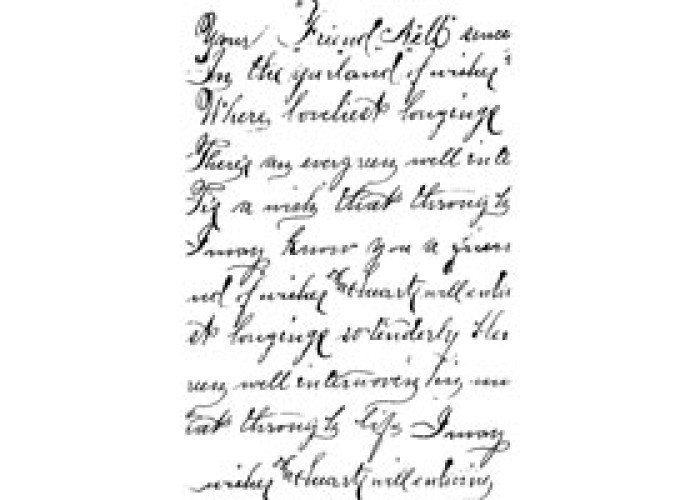 Your Friend Nell since
In the garland of wishes
Where loveliest longings
There's an evergreen well inte
Tis a wish that through
I may know you a frien
nd of wishes the heart will entw
est longings so tenderly
reen well interwoven Tis
that through life I may
wishes the heart will entwine